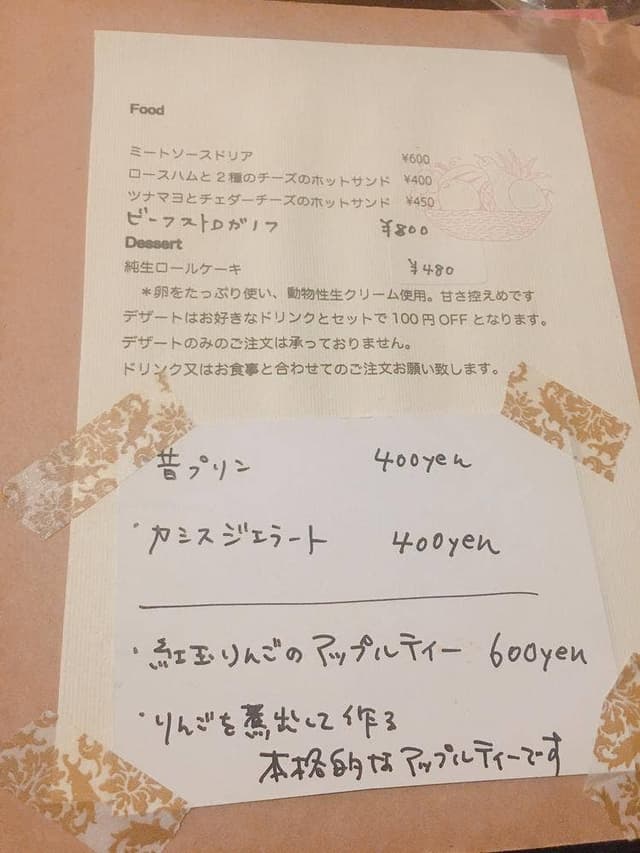 Food
ミートソースドリア ¥600
ロースハムと2種のチーズのホットサンド ¥400
ツナマヨとチェダーチーズのホットサンド ¥450
ビーフストロガノフ ¥800
Dessert
純生ロールケーキ ¥480
＊卵をたっぷり使い、動物性生クリーム使用。甘さ控えめです
デザートはお好きなドリンクとセットで100円OFFとなります。
デザートのみのご注文は承っておりません。
ドリンク又はお食事と合わせてのご注文お願い致します。
昔プリン 400yen
・カシスジェラート 400yen
・紅玉りんごのアップルティー 600yen
・りんごを煮出して作る
本格的なアップルティーです